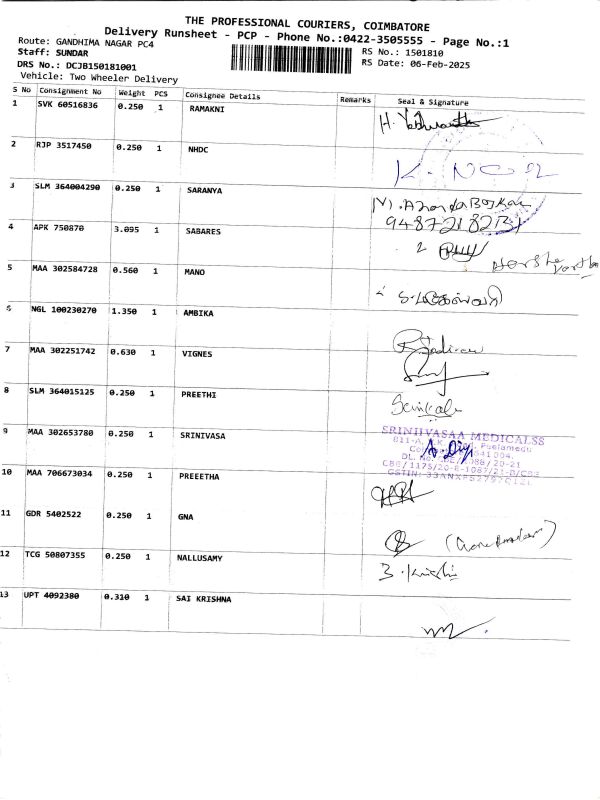 THE PROFESSIONAL COURIERS, COIMBATORE
Delivery Runsheet - PCP - Phone No.:0422-3505555 - Page No.:1
Route: GANDHIMA NAGAR PC4
Staff: SUNDAR
DRS No.: DCJB150181001
Vehicle: Two Wheeler Delivery
RS No.: 1501810
RS Date: 06-Feb-2025
S No Consignment No Weight PCS Consignee Details Remarks Seal & Signature
1 SVK 60516836 0.250 1 RAMAKNI
2 RJP 3517450 0.250 1 NHDC
3 SLM 364004290 0.250 1 SARANYA
9487218231
4 APK 750870 3.095 1 SABARES
5 MAA 302584728 0.560 1 MANO
6 NGL 100230270 1.350 1 AMBIKA
7 MAA 302251742 0.630 1 VIGNES
8 SLM 364015125 0.250 1 PREETHI
9 MAA 302653780 0.250 1 SRINIVASA
SRINIIVASAA MEDICALSS
10 MAA 706673034 0.250 1 PREEETHA
11 GDR 5402522 0.250 1 GNA
12 TCG 50807355 0.250 1 NALLUSAMY
13 UPT 4092380 0.310 1 SAI KRISHNA